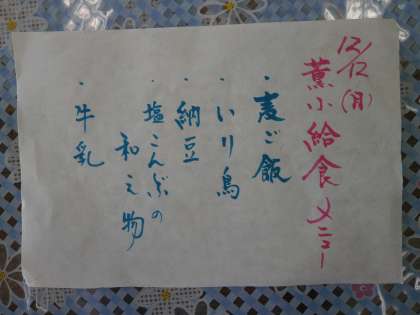 12/12(月)
薫小給食メニュー
・麦ご飯
・いり鳥
・納豆
・塩こんぶの
和え物
・牛乳